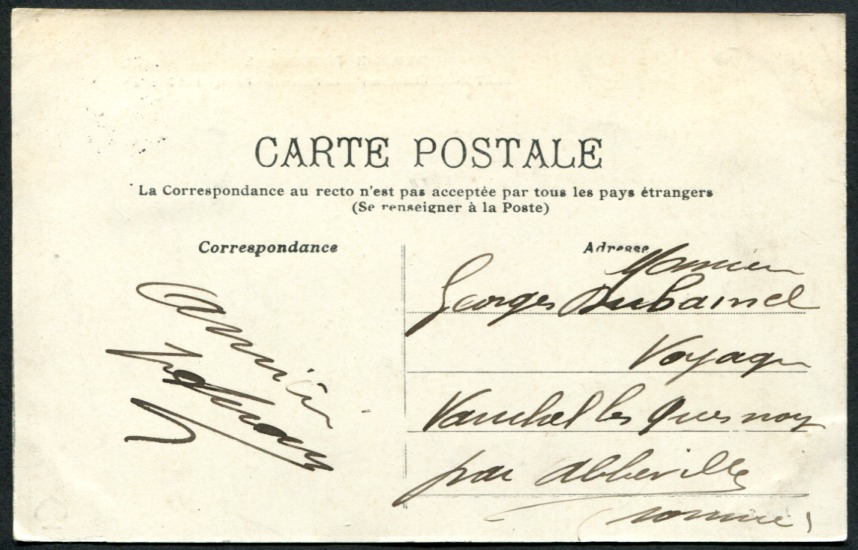 CARTE POSTALE
La Correspondance au recto n'est pas acceptée par tous les pays étrangers
(Se renseigner à la Poste)
Correspondance
Adresse
Monsieur
Georges
Voyageur
Vauchel les Quesnoy
par Abbeville
(Somme)